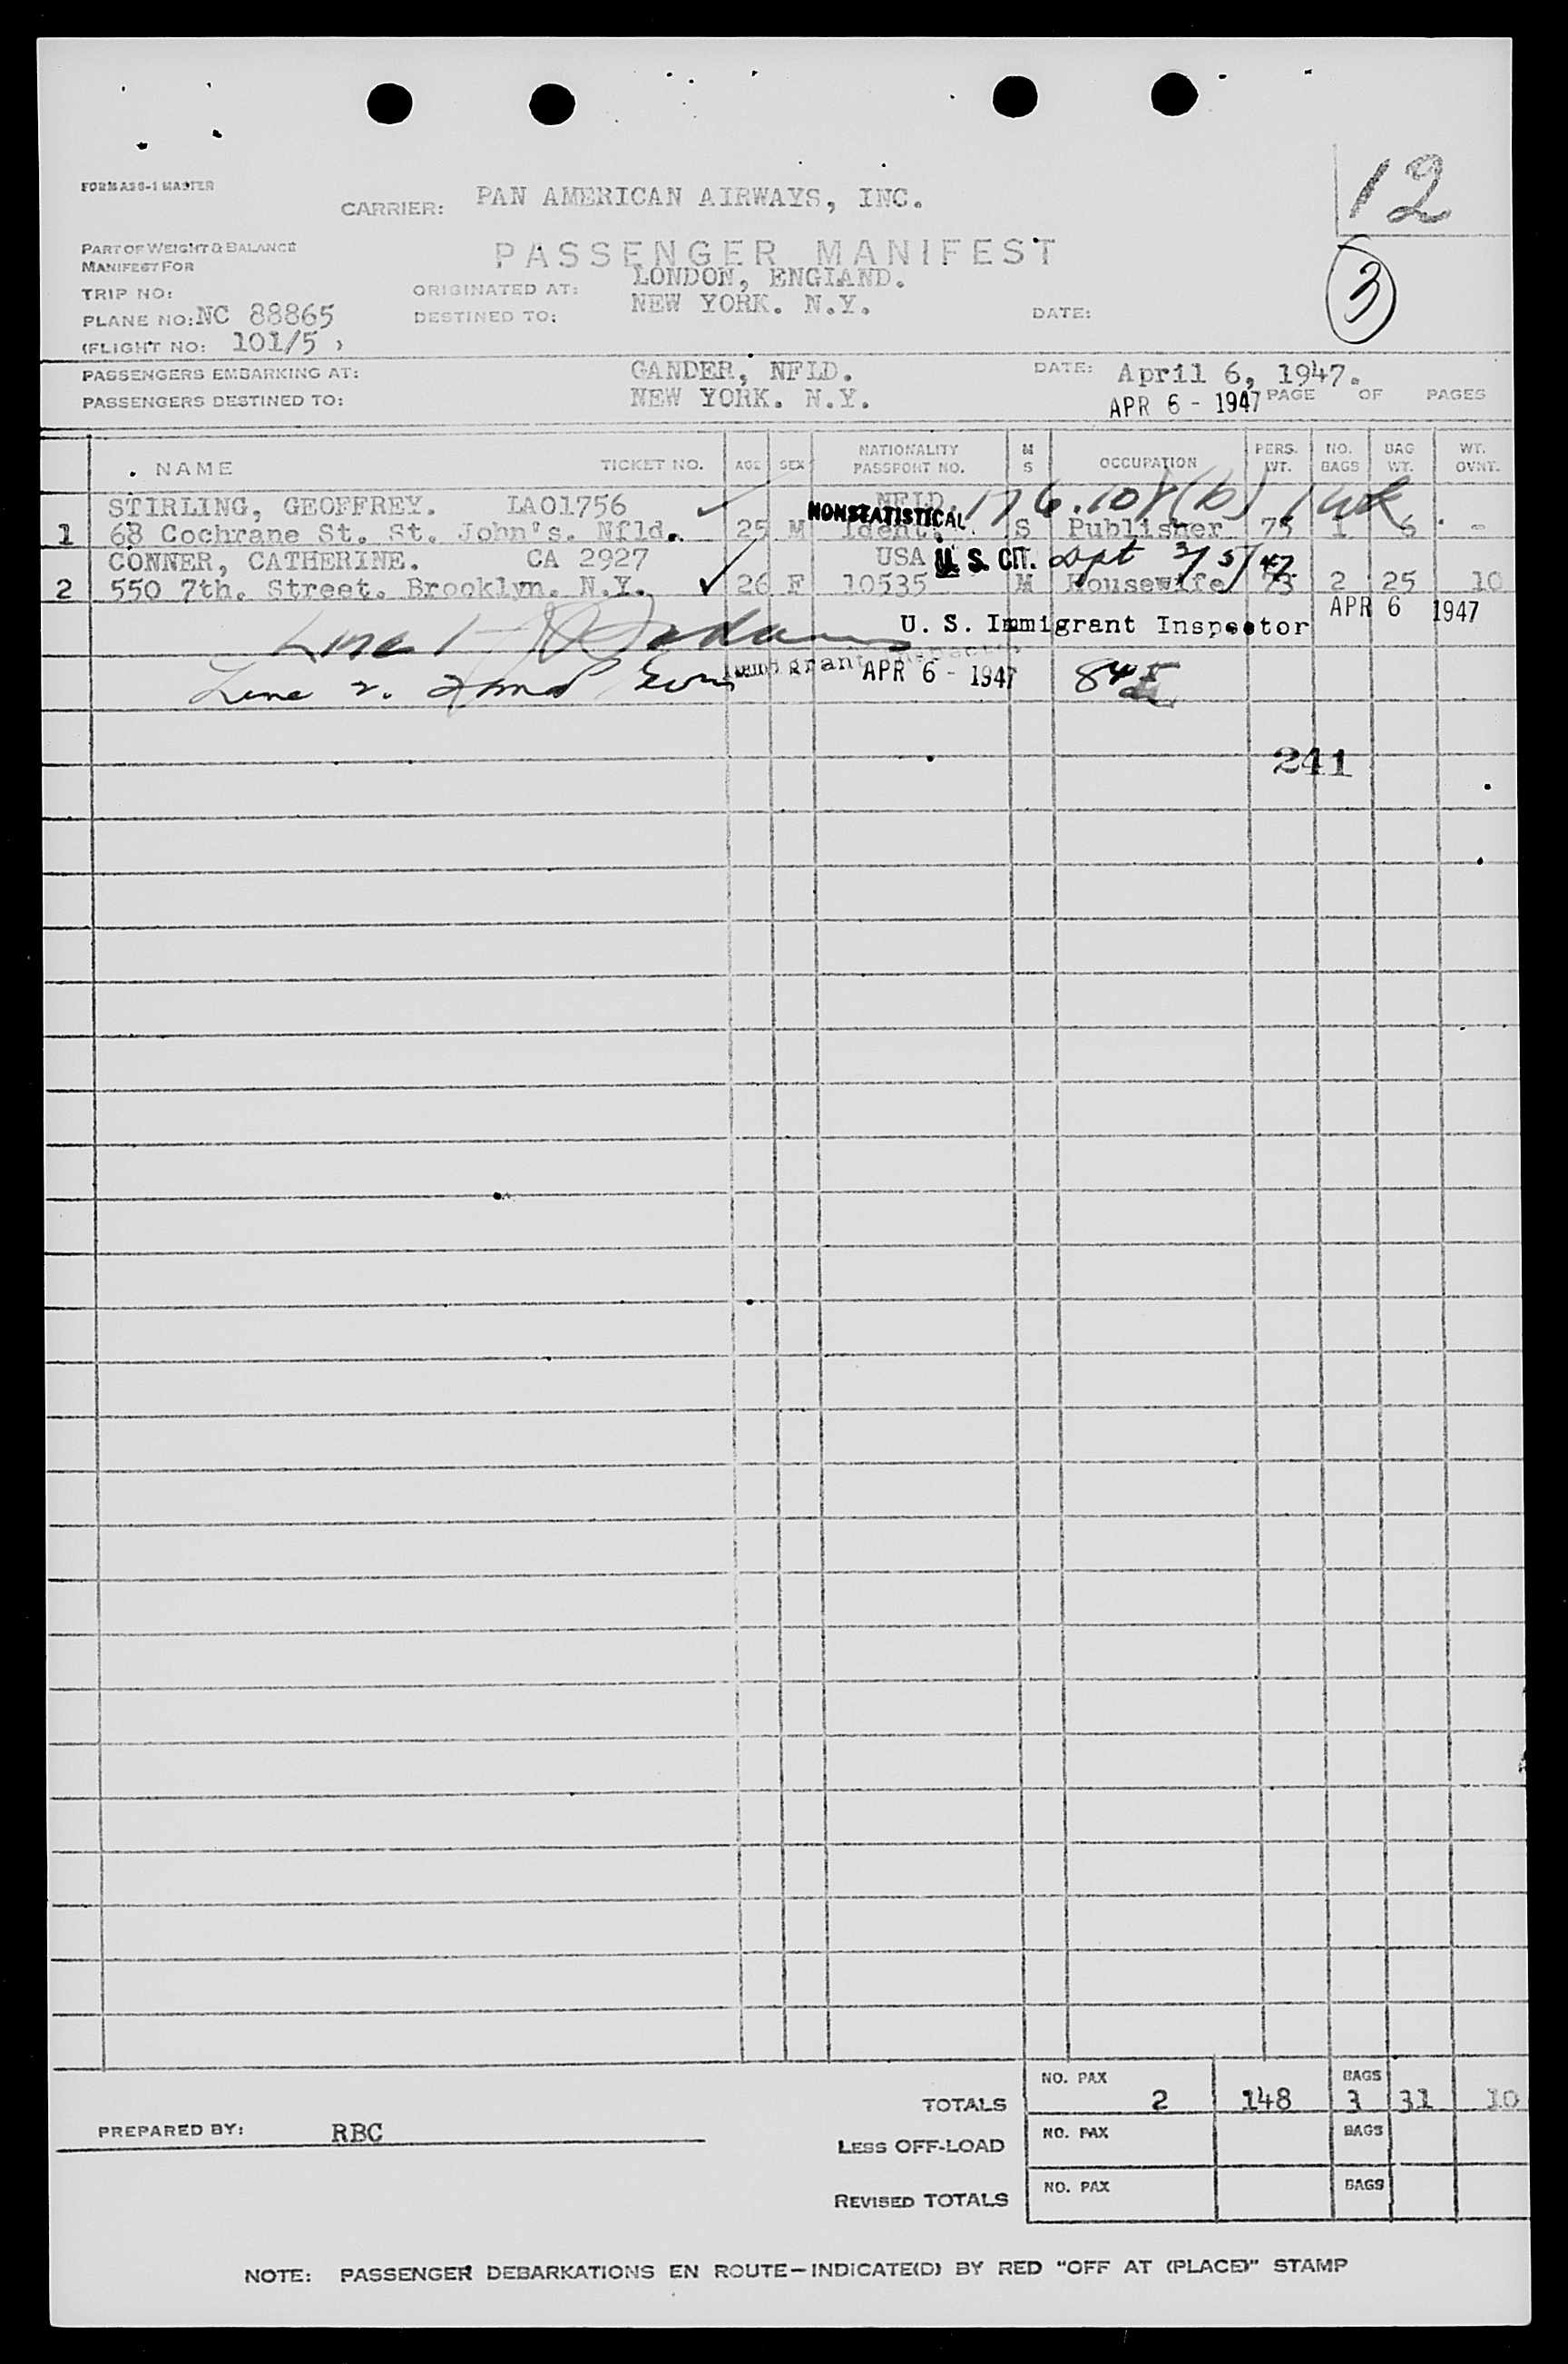 12
FORM A20-1 MASTER
CARRIER: PAN AMERICAN AIRWAYS, INC.
PART OF WEIGHT & BALANCE
MANIFEST FOR
PASSENGER MANIFEST
3
TRIP NO:
ORIGINATED AT: LONDON, ENGLAND.
PLANE NO: NC 88865
DESTINED TO: NEW YORK. N.Y.
DATE:
(FLIGHT NO: 101/5 )
PASSENGERS EMBARKING AT: GANDER, NFLD. DATE: April 6, 1947.
PASSENGERS DESTINED TO: NEW YORK. N.Y. APR 6 - 1947 PAGE OF PAGES
NAME TICKET NO. AGE SEX NATIONALITY PASSPORT NO. M S OCCUPATION PERS. WT. NO. BAGS BAG WT. WT. OVNT.
STIRLING, GEOFFREY. LA01756 NFLD. 176.108(b) 1 wk
1 68 Cochrane St. St. John's. Nfld. 25 M NONSTATISTICAL Ident. S Publisher 75 1 6 -
CONNER, CATHERINE. CA 2927 USA U. S. CIT. Dpt 3/5/47
2 550 7th. Street. Brooklyn. N.Y. 26 F 10535 M Housewife 73 2 25 10
Line 1 U. S. Immigrant Inspector APR 6 1947
Line 2. Immigrant APR 6 - 1947 845
241
TOTALS NO. PAX 2 148 BAGS 3 31 10
PREPARED BY: RBC
LESS OFF-LOAD NO. PAX BAGS
REVISED TOTALS NO. PAX BAGS
NOTE: PASSENGER DEBARKATIONS EN ROUTE—INDICATE(D) BY RED "OFF AT (PLACE)" STAMP